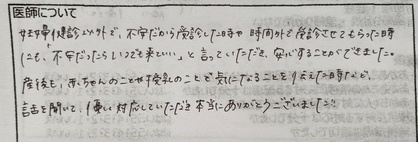 医師について
妊婦健診以外で、不安だから受診した時や時間外で受診させてもらった時
にも、「不安だったらいつでも来ていい」と言っていただき、安心することができました。
産後も、赤ちゃんのことや母乳のことで気になることを伝えた時など、
話を聞いて、優しい対応していただき本当にありがとうございました!!